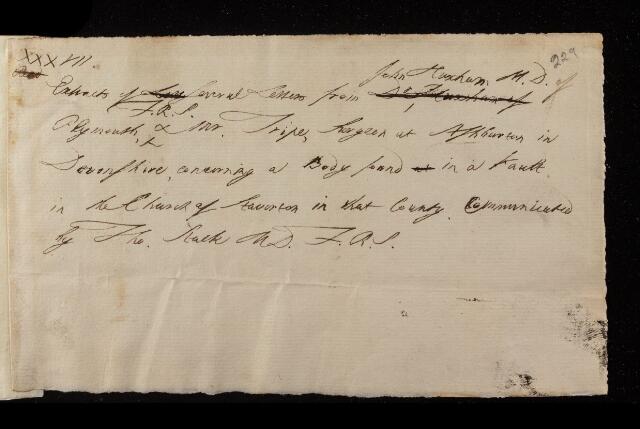 XXXVII.
229
Extracts of several Letters from John Huxham, M.D. of
F.R.S.
Plymouth, & Mr. Tripe, Surgeon at Ashburton in
Devonshire, concerning a Body found in a Vault
in the Church of Staverton in that County. Communicated
by Tho. M.D. F.R.S.